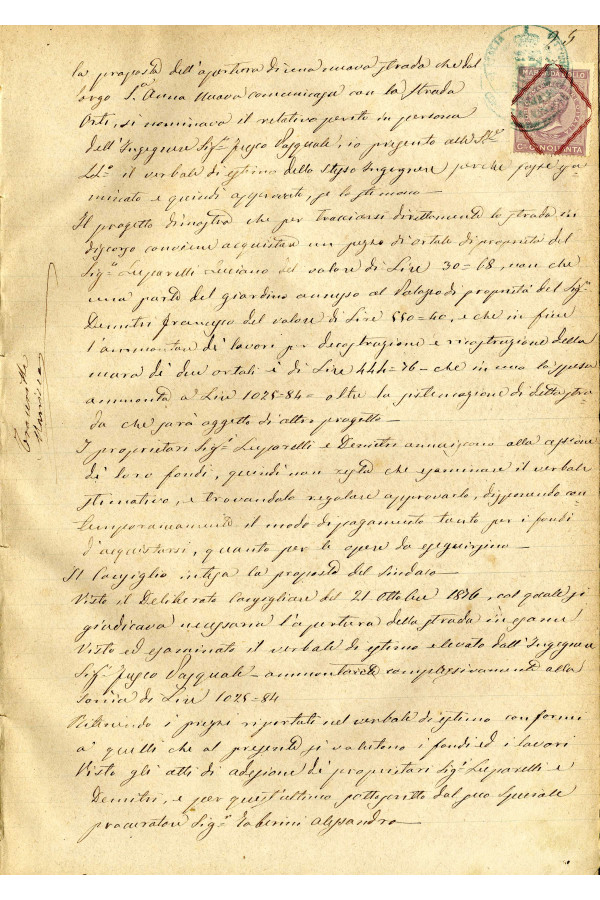 la proposta dell'apertura di una nuova strada che dal
borgo S.ª Anna Nuova comunicasse con la strada
Orti, si nominava il relativo perito in persona
dell'Ingegnere Sig.r Pasquale, io presento alle
il verbale di estimo dello stesso Ingegnere perchè fosse esa-
minato e quindi approvato, se lo stimano—
Il progetto dimostra che per tracciarsi direttamente la strada in
discorso conviene acquistare un pezzo di ortale di proprietà del
Sig.r Luparelli Luciano del valore di Lire 30=68, non che
una parte del giardino annesso al Palazzo di proprietà del Sig.r
Demitri Francesco del valore di Lire 550=40, e che in fine
l'ammontare de' lavori per decostruzione e ricostruzione delle
mura de' due ortali è di Lire 444=76— che in uno la spesa
ammonta a Lire 1025=84= oltre la sistemazione di detta stra-
da che sarà oggetto di altro progetto—
I proprietari Sig.i Luparelli e Demitri annuiscono alla cessione
de' loro fondi, quindi non resta che esaminare il verbale
stimativo, e trovandolo regolare approvarlo, disponendo con-
temporaneamente il modo di pagamento tanto per i fondi
d'acquistarsi, quanto per le opere da eseguirsi—
Il Consiglio intesa la proposta del Sindaco—
Visto il Deliberato Consigliare del 21 Ottobre 1876, col quale si
giudicava necessaria l'apertura della strada in esame
Visto ed esaminato il verbale di estimo elevato dall'Ingegnere
Sig.r Pasquale— ammontare complessivamente alla
somma di Lire 1025=84
Ritenendo i prezzi riportati nel verbale di estimo conformi
a quelli che al presente si valutano i fondi ed i lavori
Visto gli atti di adesione de' proprietari Sig.i Luparelli e
Demitri, e per quest'ultimo sottoscritto dal suo speciale
procuratore Sig.r Alessandro—
MARCA DA BOLLO
C. CINQUANTA